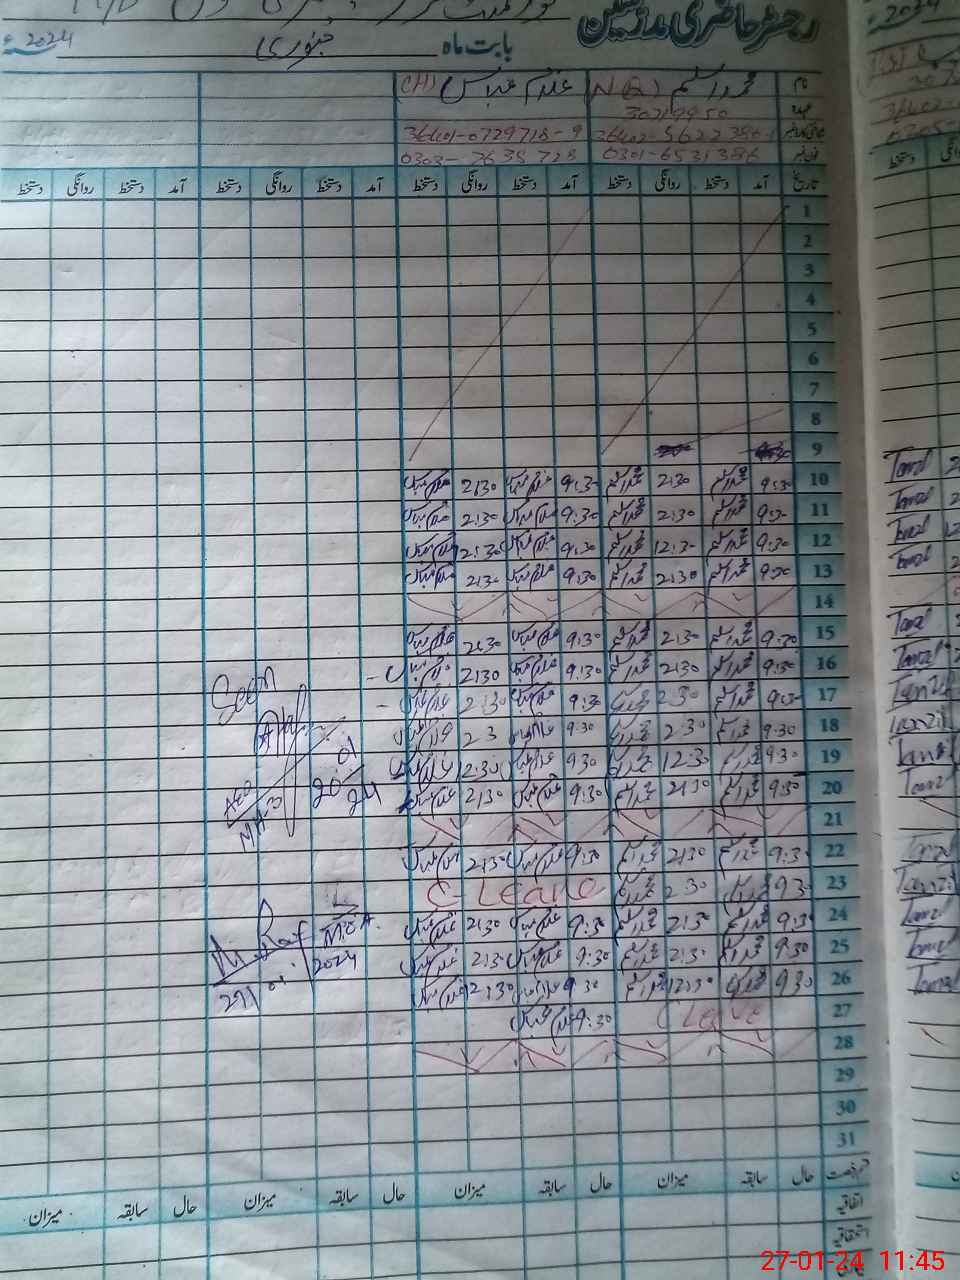 رجسٹر حاضری مدرسین
بابت ماہ جنوری 2024ء
نام محمد اسلم (NQ) غلام عباس (CH)
عہدہ 30219950
36402-5622386-1 36401-0729718-9
فون نمبر 0301-6531386 0303-7635723
تاریخ آمد دستخط روانگی دستخط آمد دستخط روانگی دستخط آمد دستخط روانگی دستخط آمد دستخط روانگی دستخط
1
2
3
4
5
6
7
8
9
10 9:30 محمد اسلم 2:30 محمد اسلم 9:30 غلام عباس 2:30 غلام عباس
11 9:30 محمد اسلم 2:30 محمد اسلم 9:30 غلام عباس 2:30 غلام عباس
12 9:30 محمد اسلم 12:30 محمد اسلم 9:30 غلام عباس 12:30 غلام عباس
13 9:30 محمد اسلم 2:30 محمد اسلم 9:30 غلام عباس 2:30 غلام عباس
14
15 9:30 محمد اسلم 2:30 محمد اسلم 9:30 غلام عباس 2:30 غلام عباس
16 9:30 محمد اسلم 2:30 محمد اسلم 9:30 غلام عباس 2:30 غلام عباس
17 9:30 محمد اسلم 2:30 محمد اسلم 9:30 غلام عباس 2:30 غلام عباس
18 9:30 محمد اسلم 2:30 محمد اسلم 9:30 غلام عباس 2:3 غلام عباس
19 9:30 محمد اسلم 12:30 محمد اسلم 9:30 غلام عباس 12:30 غلام عباس
20 9:30 محمد اسلم 2:30 محمد اسلم 9:30 غلام عباس 2:30 غلام عباس
21
22 9:30 محمد اسلم 2:30 محمد اسلم 9:30 غلام عباس 2:30 غلام عباس
23 9:30 محمد اسلم 2:30 محمد اسلم C Leave
24 9:30 محمد اسلم 2:30 محمد اسلم 9:30 غلام عباس 2:30 غلام عباس
25 9:30 محمد اسلم 2:30 محمد اسلم 9:30 غلام عباس 2:30 غلام عباس
26 9:30 محمد اسلم 12:30 محمد اسلم 9:30 غلام عباس 12:30 غلام عباس
27 C Leave 9:30 غلام عباس
28
29
30
31
Seen
AEO
20 01 24
M. Rauf
MEA
2024
حال سابقہ میزان حال سابقہ میزان حال سابقہ میزان حال سابقہ میزان
اتفاقیہ
استحقاقیہ
27-01-24 11:45